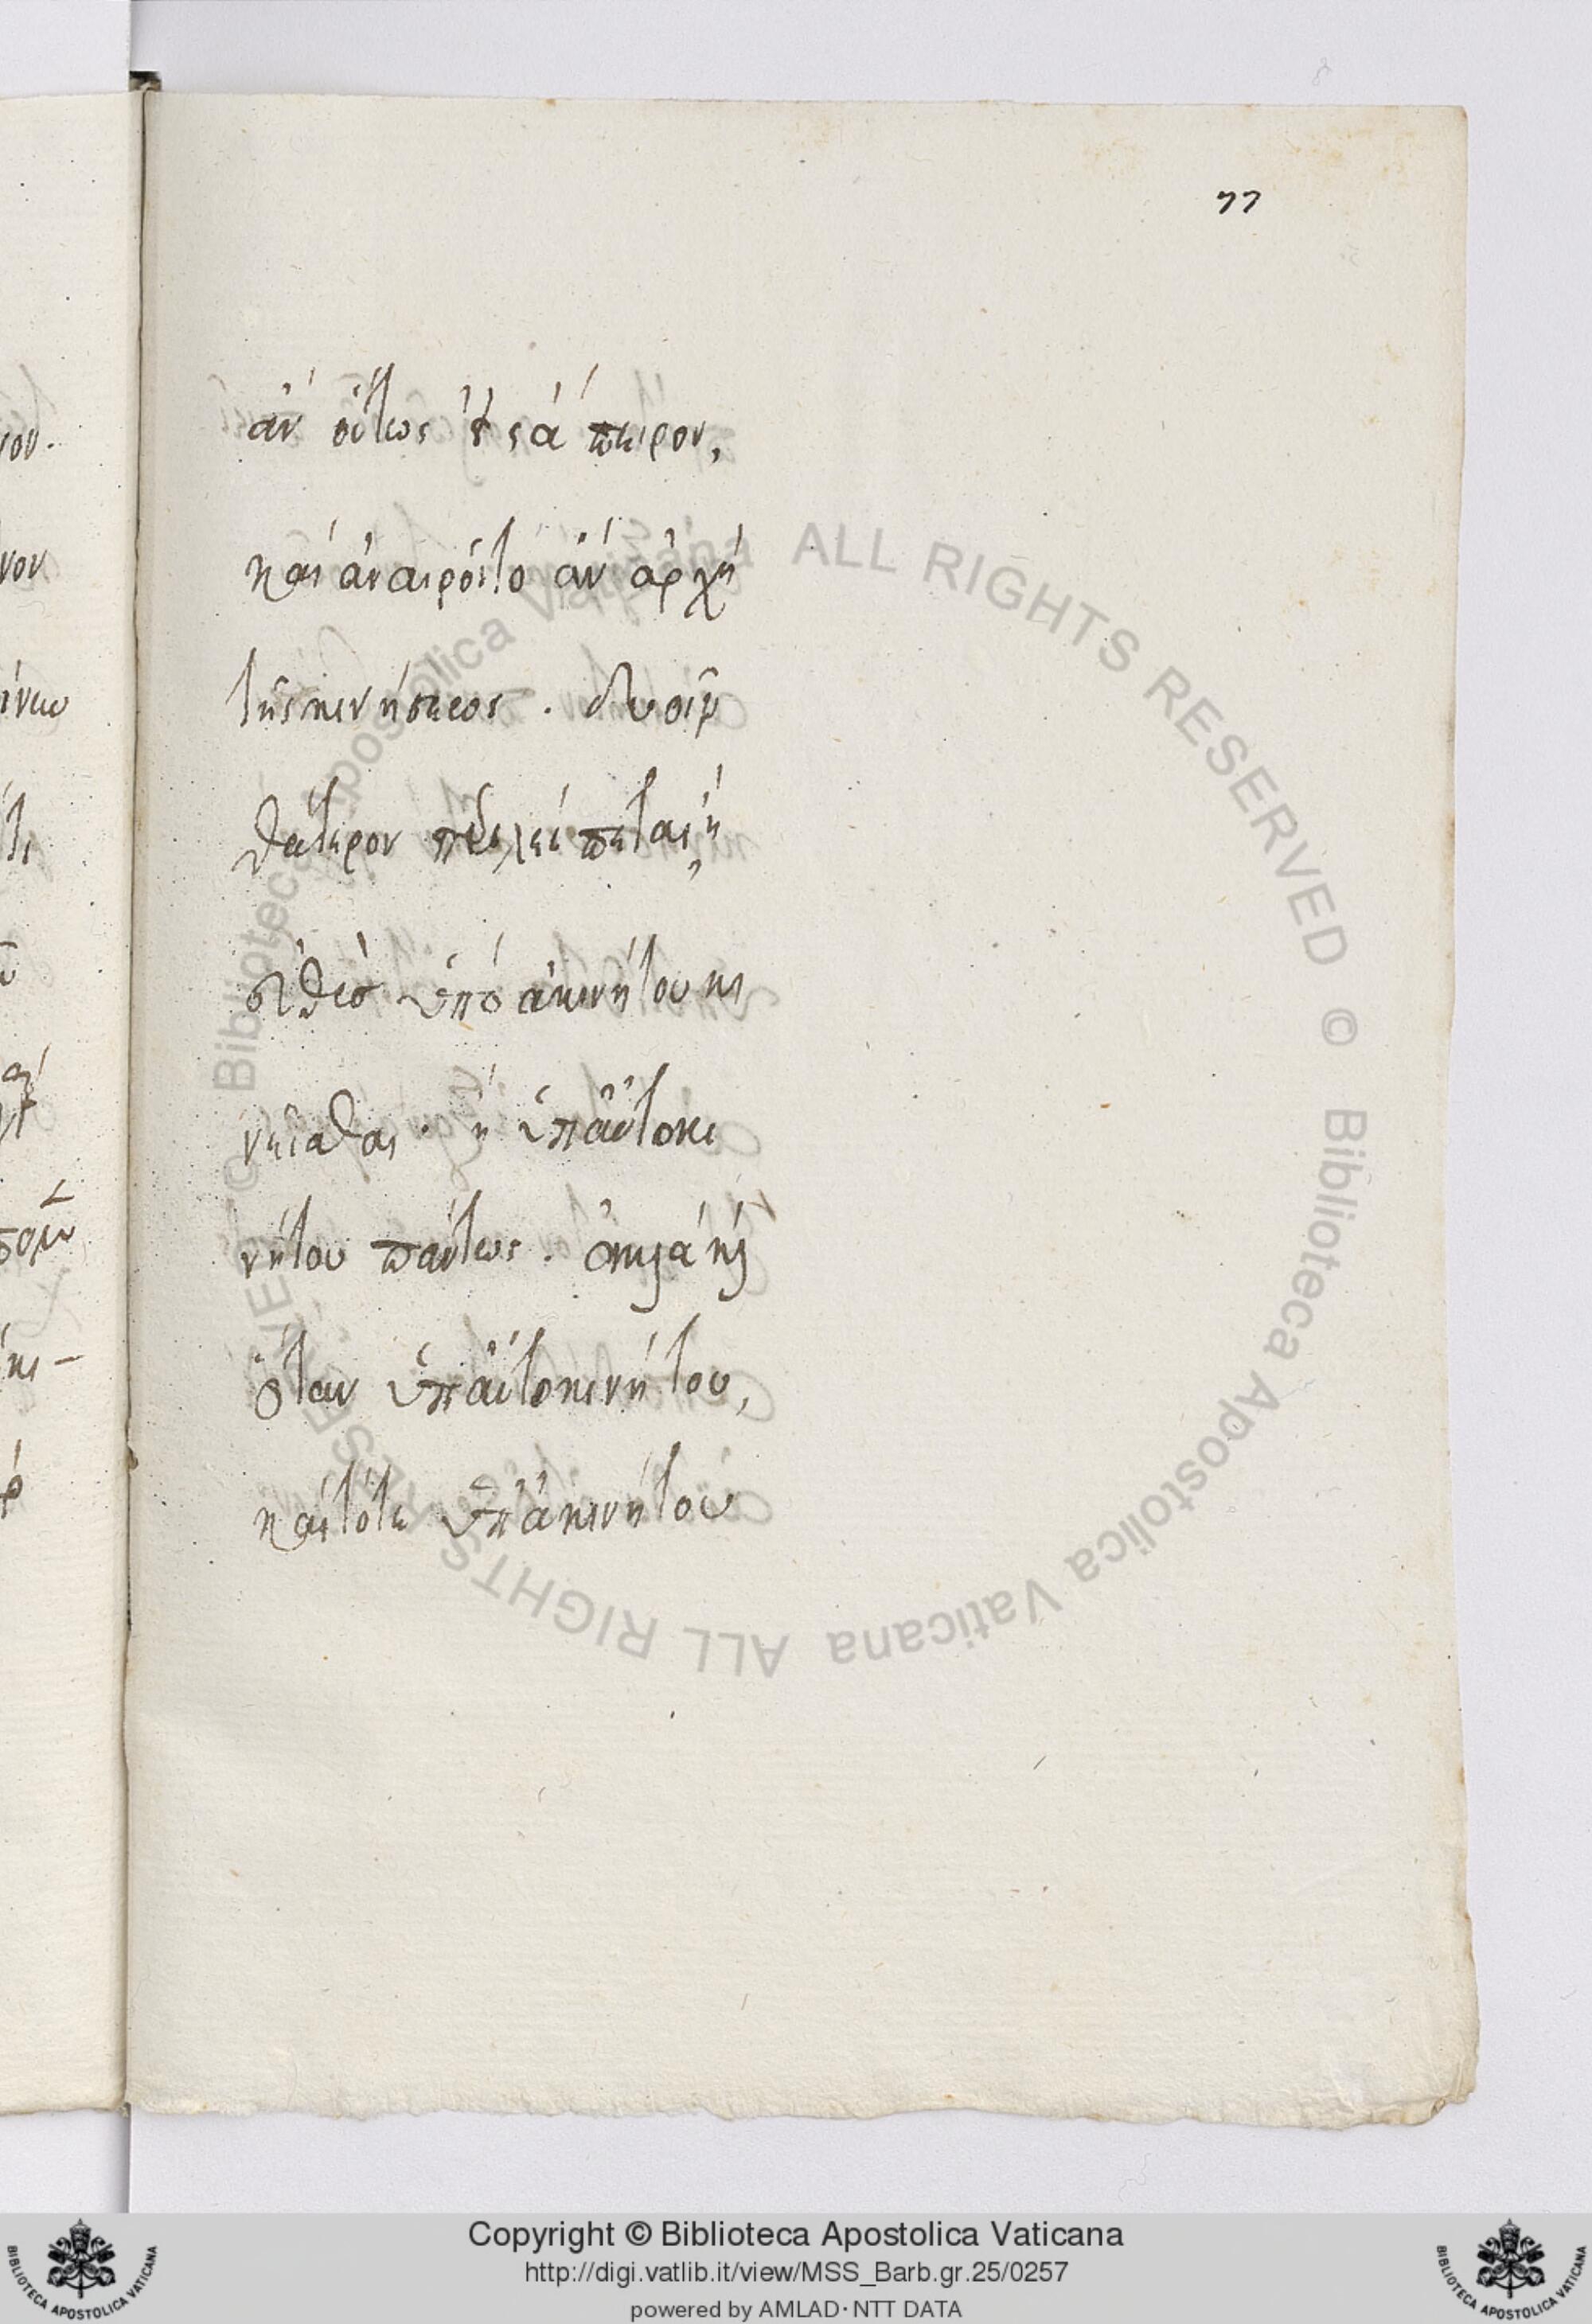 77
ἂν οὕτως ἐς ἄπειρον,
καὶ ἀναιροῖτο ἂν ἀρχὴ
τῆς κινήσεως. δυοῖν
θάτερον περιλείπεται, ἢ
εὐθὺς ὑπὸ ἀκινήτου κι
νεῖσθαι. ἢ ὑπ' αὐτοκι
νήτου πάντως. καὶ
ὅταν ὑπ' αὐτοκινήτου,
καὶ τότε ὑπ' ἀκινήτου
Biblioteca Apostolica Vaticana ALL RIGHTS RESERVED © Biblioteca Apostolica Vaticana ALL RIGHTS RESERVED ©
Copyright © Biblioteca Apostolica Vaticana
http://digi.vatlib.it/view/MSS_Barb.gr.25/0257
powered by AMLAD·NTT DATA
BIBLIOTECA APOSTOLICA VATICANA
BIBLIOTECA APOSTOLICA VATICANA